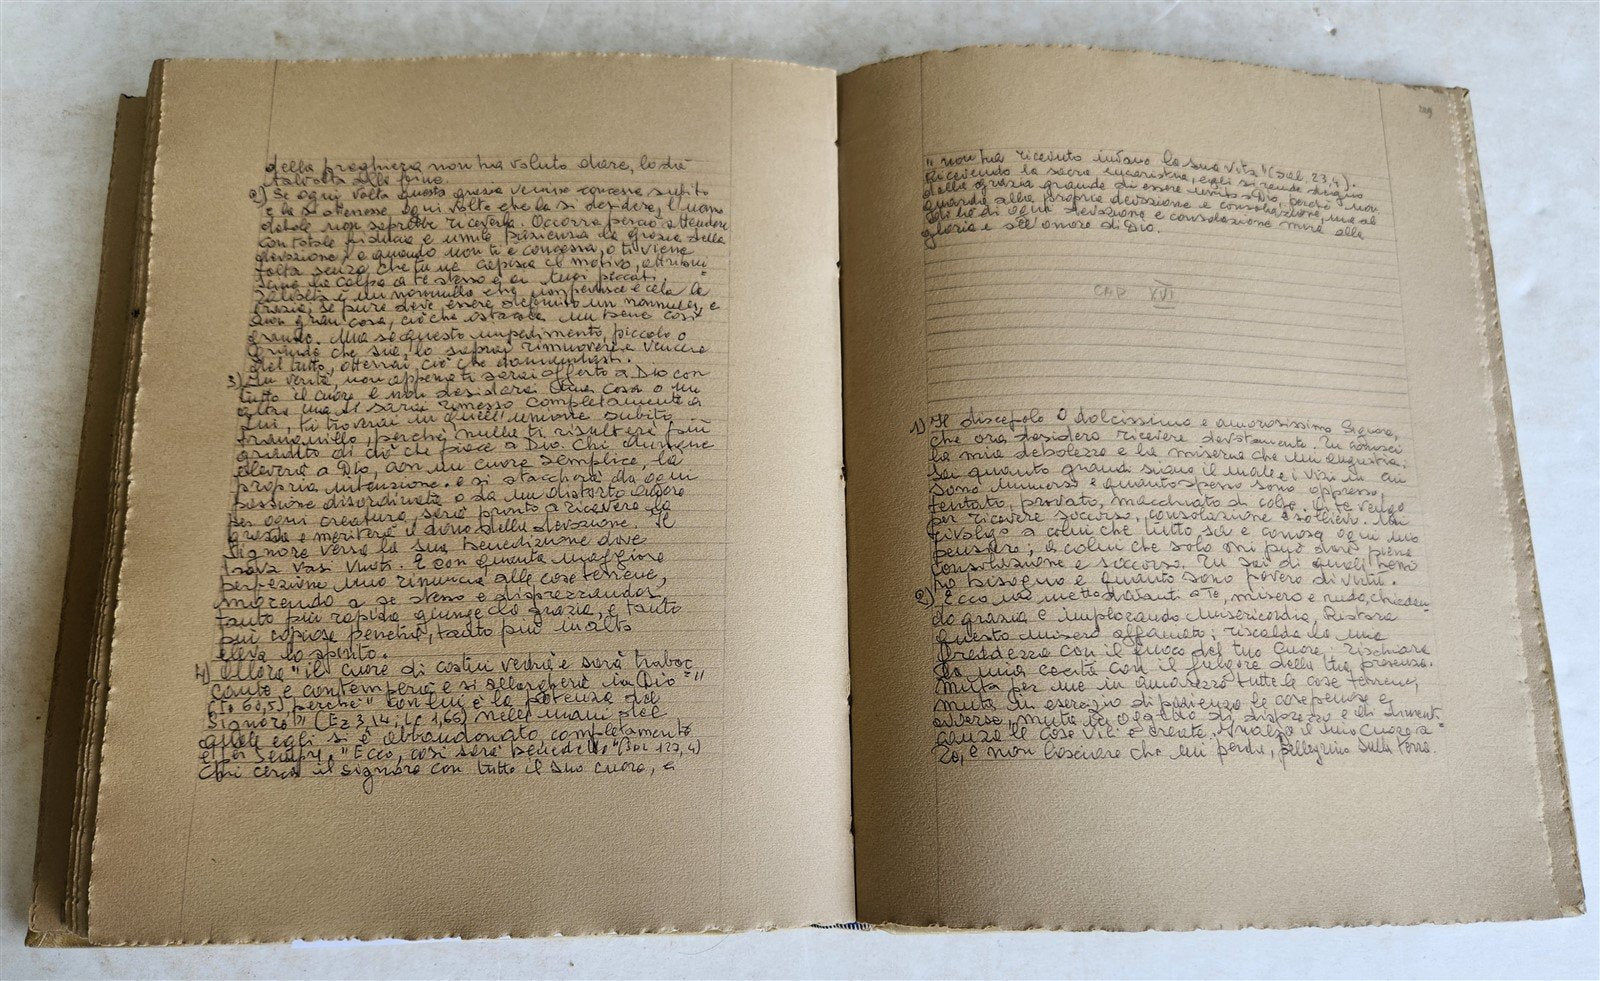 della preghiera non ha voluto dare, lo dà
talvolta alla fine.
2) Se ogni volta questa grazia venisse concessa subito
e la si ottenesse ogni volta che la si desidera, l'uomo
debole non saprebbe riceverla. Occorre perciò attendere
con totale fiducia e umile pazienza la grazia della
devozione; e quando non ti è concessa, o ti viene
tolta senza che tu ne capisca il motivo, attribui=
scine la colpa a te stesso e ai tuoi peccati.
Talvolta è un nonnulla che impedisce e cela la
grazia, se pure deve essere definito un nonnulla, e
non gran cosa, ciò che ostacola un bene così
grande. Ma se questo impedimento, piccolo o
grande che sia, lo saprai rimuovere e vincere
del tutto, otterrai ciò che domandasti.
3) In verità, non appena ti sarai offerto a Dio con
tutto il cuore e non desidererai una cosa o un
altra ma ti sarai rimesso completamente a
Lui, ti troverai in quell'unione subito
tranquillo, perché nulla ti risulterà più
gradito di ciò che piace a Dio. Chi dunque
eleverà a Dio, con un cuore semplice, la
propria intenzione e si staccherà da ogni
passione disordinata o da un distorto amore
per ogni creatura, sarà pronto a ricevere la
grazia e meriterà il dono della devozione. Il
Signore versa la sua benedizione dove
trova vasi vuoti. E con quanta maggiore
perfezione uno rinuncia alle cose terrene,
morendo a se stesso e disprezzandosi,
tanto più rapida giunge la grazia, e tanto
più copiosa penetra, tanto più in alto
eleva lo spirito.
4) Allora "il cuore di costui vedrà e sarà traboc=
cante e contemplerà e si allargherà in Dio"
(Is 60,5) perché "con lui è la potenza del
Signore" (Ez 3,14; Lc 1,66) nelle mani del
quale egli si è abbandonato completamente
e per sempre. "Ecco, così sarà benedetto" (Sal 127,4)
chi cerca il signore con tutto il suo cuore, e
"non ha ricevuto invano la sua vita" (Sal. 23,4).
Ricevendo la sacra eucaristia, egli si rende degno
della grazia grande di essere unito a Dio, perché non
guarda alla propria devozione e consolazione, ma al
di là di ogni devozione e consolazione mira alla
gloria e all'onore di Dio.
CAP XVI
1) Il discepolo O dolcissimo e amorosissimo Signore,
che ora desidero ricevere devotamente. Tu conosci
la mia debolezza e la miseria che mi angustia;
sai quanto grandi siano il male e i vizi in cui
sono immerso e quanto spesso sono oppresso,
tentato, provato, macchiato di colpe. A te vengo
per ricevere soccorso, consolazione e sollievo. Mi
rivolgo a colui che tutto sa e conosce ogni mio
pensiero; a colui che solo mi può dare piena
consolazione e soccorso. Tu sai di quali beni
ho bisogno e quanto sono povero di virtù.
2) Ecco mi metto davanti a Te, misero e nudo, chieden=
do grazia e implorando misericordia. Ristora
questo misero affamato; riscalda la mia
freddezza con il fuoco del tuo cuore; rischiara
la mia cecità con il fulgore della tua presenza.
Muta per me in amarezza tutte le cose terrene,
muta in esercizio di pazienza le cose penose e
avverse, muta in oggetto di disprezzo e di dimenti=
canza le cose vili e create. Innalza il mio cuore a
Te, e non lasciare che mi perda, pellegrino sulla terra.